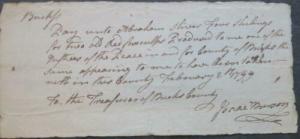 Bucks
Pay unto Abraham Stives four shillings
for two old Produced to me one of the
Justices of the Peace in and for County of Bucks the
same appearing to me to have been taken
with in this County February 1794
To the Treasurer of Bucks County
Isaac